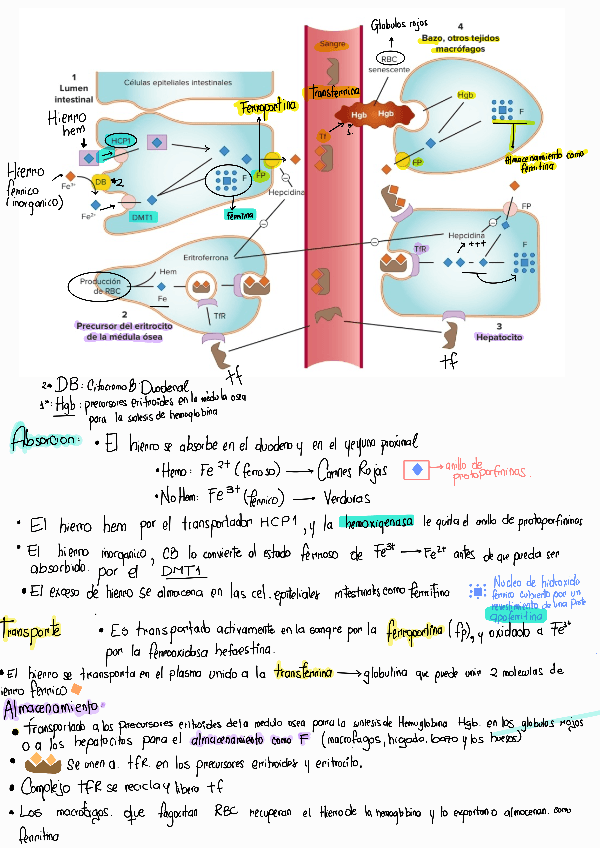 Globulos rojos
4
Bazo, otros tejidos
macrófagos
Sangre
RBC
senescente
1
Lumen
intestinal
Células epiteliales intestinales
Ferroportina
Transferrina
Hgb
Hgb Hgb
F
Hierro
hem
HCP1
Tf
1.
FP
Almacenamiento como
ferritina
Hierro
ferrico
(inorganico)
Fe³⁺
DB *2
F
FP
Hepcidina
Fe²⁺
DMT1
ferritina
FP
Hepcidina
+++
F
Eritroferrona
TfR
Producción
de RBC
Hem
Fe
TfR
2
Precursor del eritrocito
de la médula ósea
3
Hepatocito
tf
tf
2* DB: Citocromo B Duodenal
1*: Hgb: precursores eritroides en la médula osea
para la sintesis de hemoglobina
Absorcion: • El hierro se absorbe en el duodeno y en el yeyuno proximal
• Hemo: Fe²⁺ (ferroso) → Carnes Rojas
→ anillo de
protoporfirinas.
• No Hem: Fe³⁺ (ferrico) → Verduras
• El hierro hem por el transportador HCP1, y la hemoxigenasa le quita el anillo de protoporfirinas
• El hierro inorganico, CB lo convierte al estado ferroso de Fe³⁺ → Fe²⁺ antes de que pueda ser
absorbido por el DMT1
• El exceso de hierro se almacena en las cel. epiteliales intestinales como ferritina
Nucleo de hidroxido
ferrico cubierto por un
revestimiento de una parte
apoferritina
Transporte • Es transportado activamente en la sangre por la ferroportina (fp), y oxidado a Fe³⁺
por la ferrooxidasa hefaestina.
• El hierro se transporta en el plasma unido a la transferrina → globulina que puede unir 2 moleculas de
hierro ferrico
Almacenamiento.
• transportado a los precursores eritroides de la medula osea para la sintesis de Hemoglobina Hgb. en los globulos rojos
o a los hepatocitos para el almacenamiento como F (macrofagos, higado, bazo y los huesos)
• Se unen a tfR en los precursores eritroides y eritrocito.
• Complejo tfR se recicla y libera tf
• Los macrofagos que fagocitan RBC recuperan el Hierro de la hemoglobina y lo exportan o almacenan como
ferritina